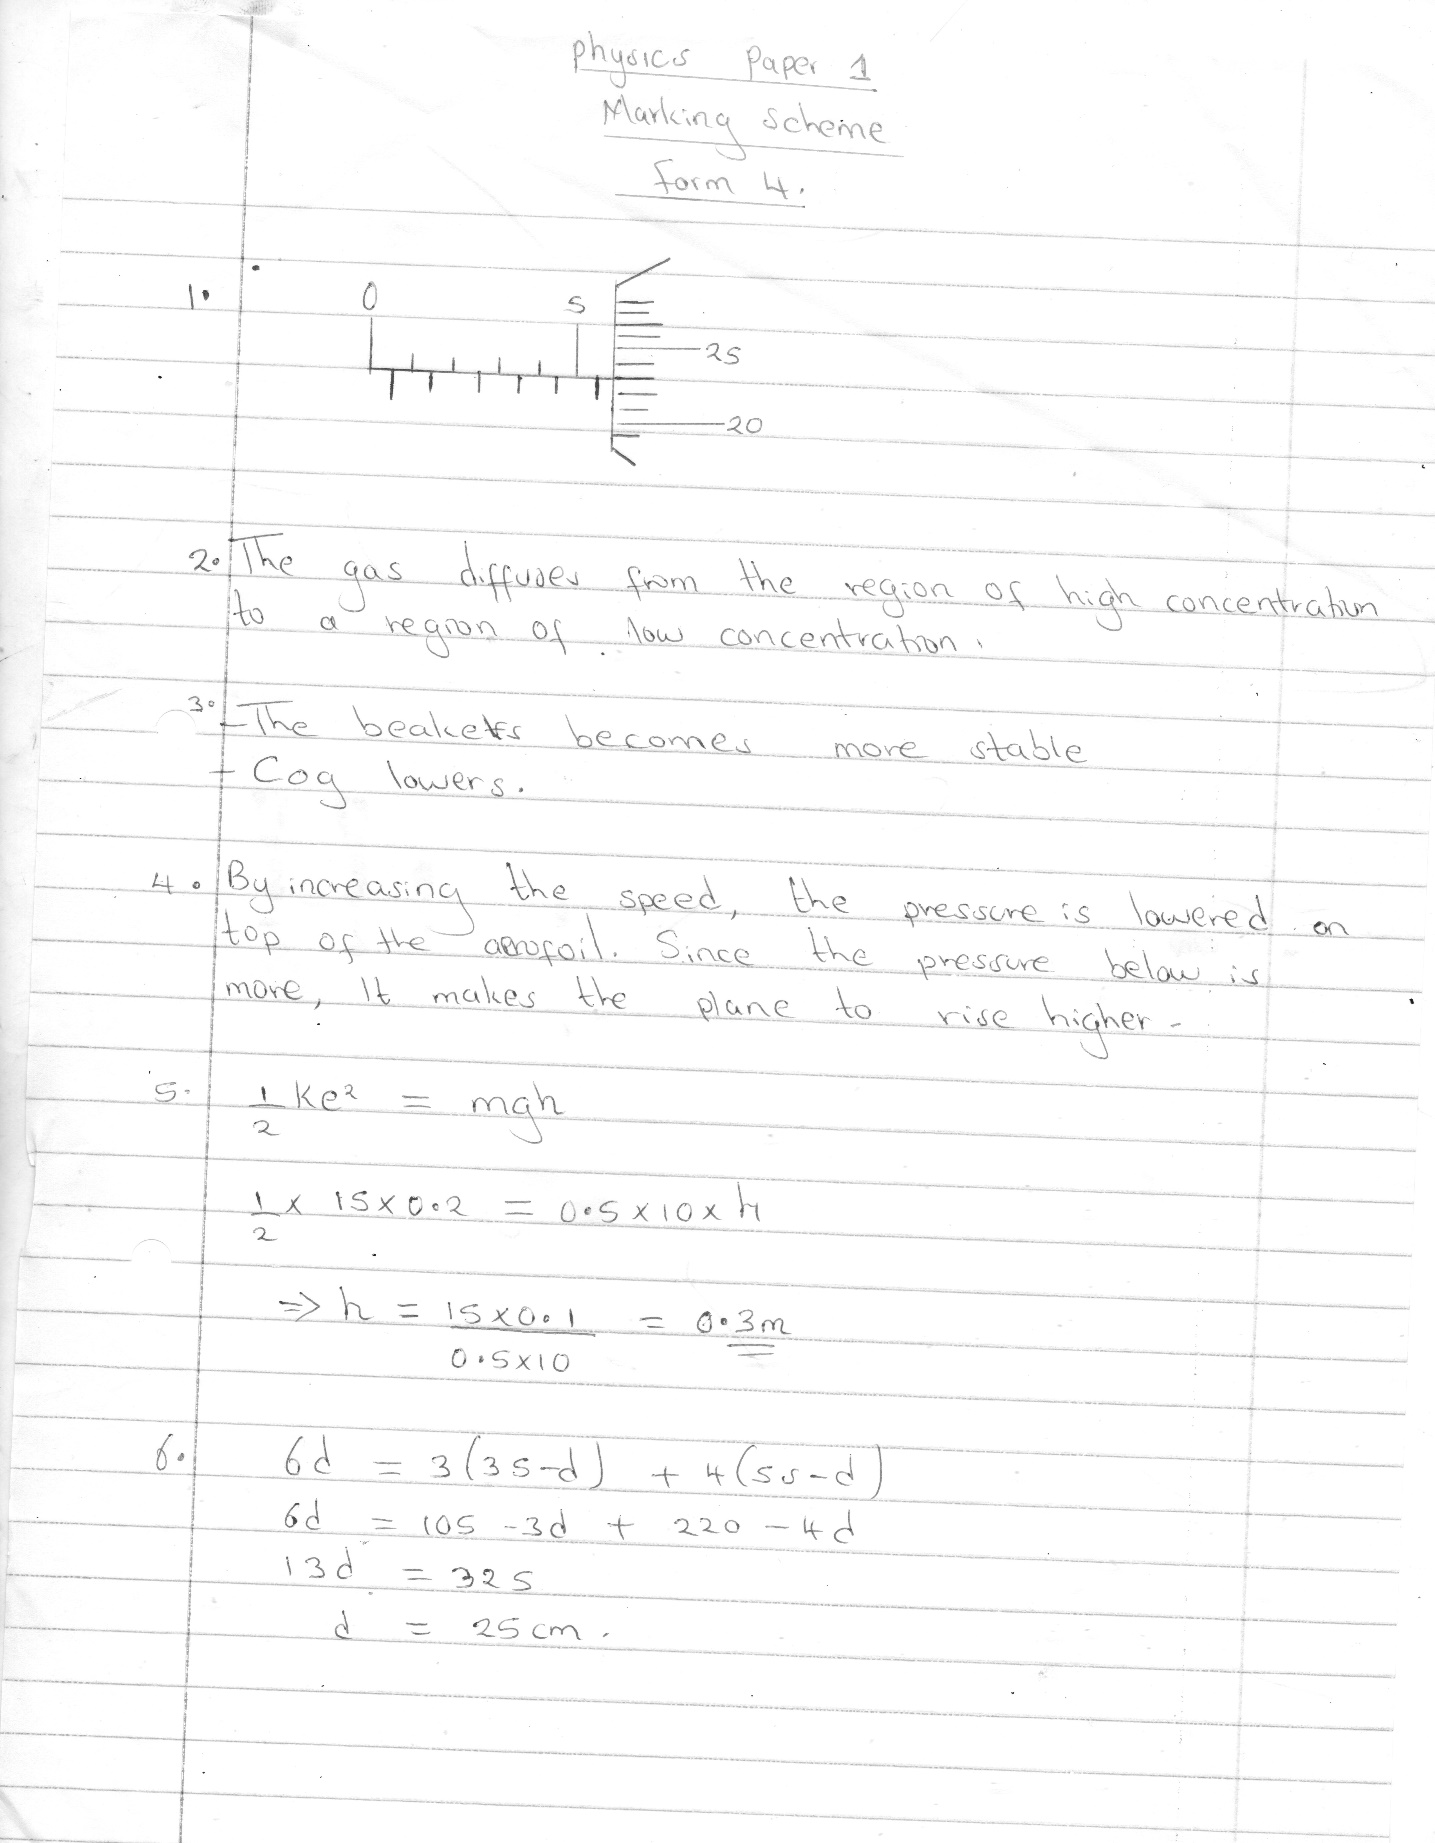 Physics Paper 1
Marking Scheme
Form 4.
1.
0 5
25
20
2. The gas diffuses from the region of high concentration
to a region of low concentration.
3. - The beakers becomes more stable
- Cog lowers.
4. By increasing the speed, the pressure is lowered on
top of the aerofoil. Since the pressure below is
more, It makes the plane to rise higher -
5. 1/2 Ke² = mgh
1/2 x 15 x 0.2 = 0.5 x 10 x h
=> h = 15 x 0.1 / 0.5 x 10 = 0.3m
6. 6d = 3(35-d) + 4(55-d)
6d = 105 - 3d + 220 - 4d
13d = 325
d = 25 cm.